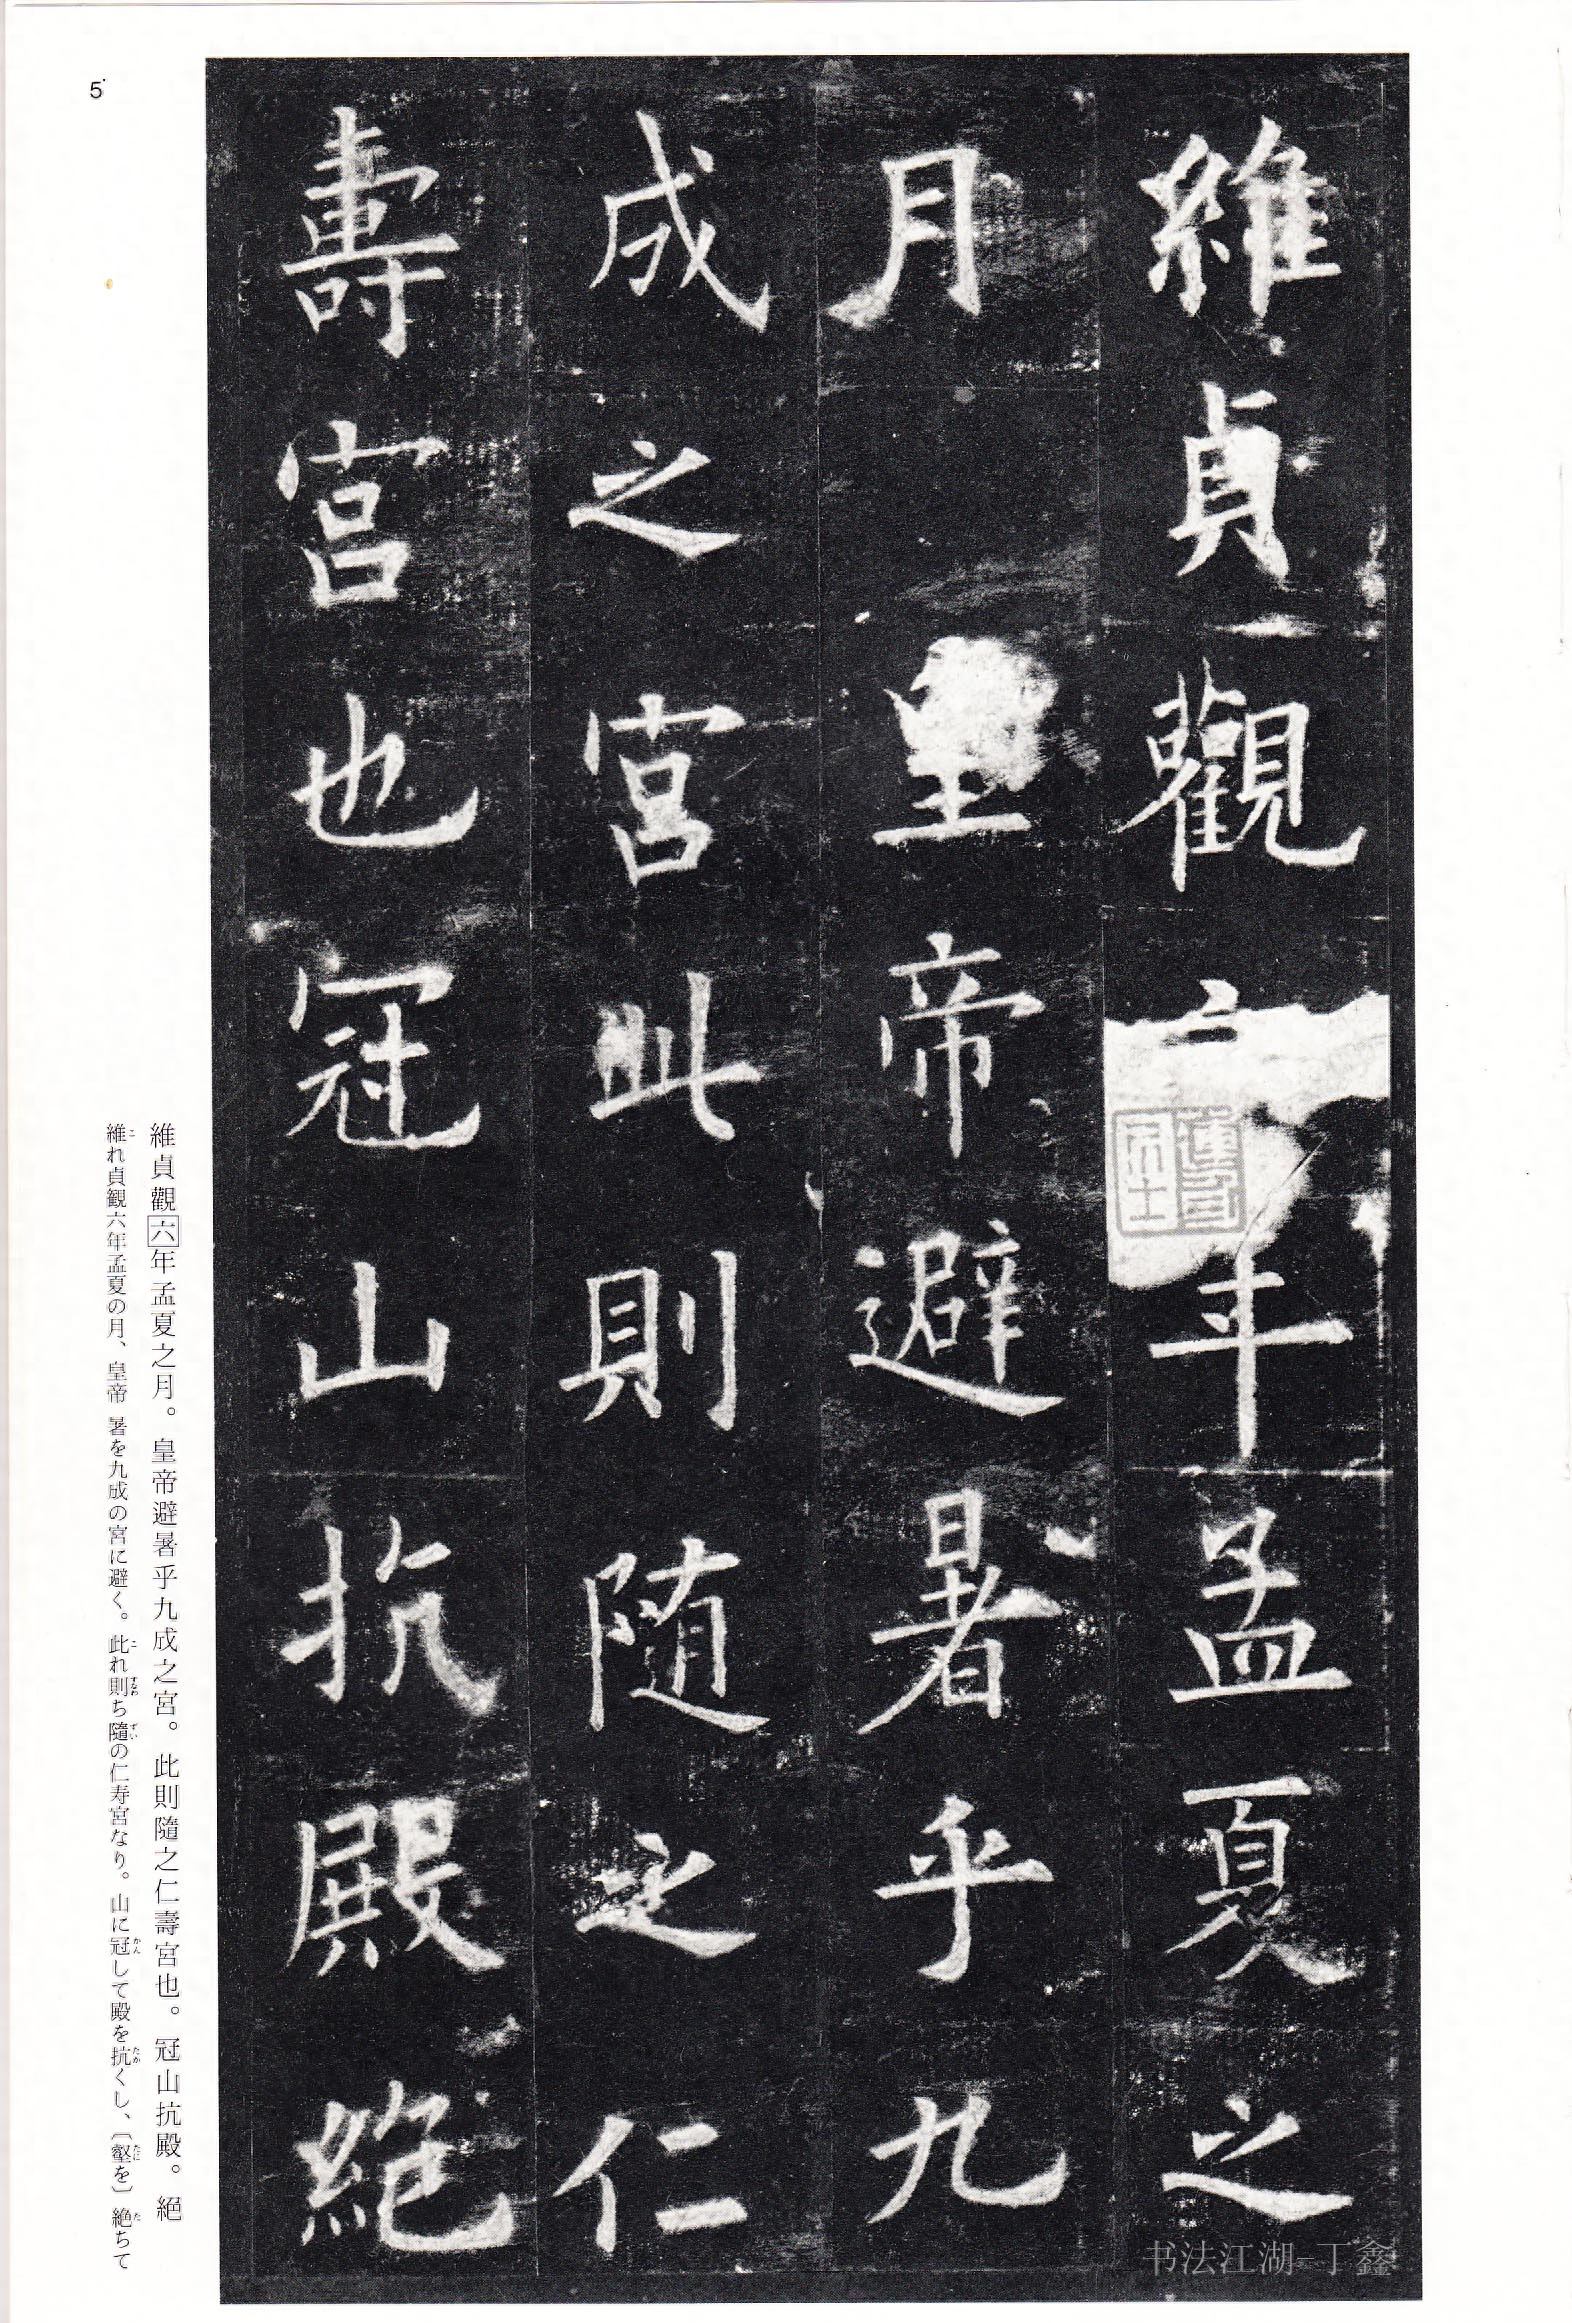 維貞觀年孟夏之
月 皇帝避暑乎九
成之宮此則隨之仁
壽宮也冠山抗殿絕
維貞觀六年孟夏之月。皇帝避暑乎九成之宮。此則隨之仁壽宮也。冠山抗殿。絕
維れ貞観六年孟夏の月、皇帝 暑を九成の宮に避く。此れ則ち隨の仁寿宮なり。山に冠して殿を抗くし、〔壑を〕絶ちて
5
书法江湖-丁鑫